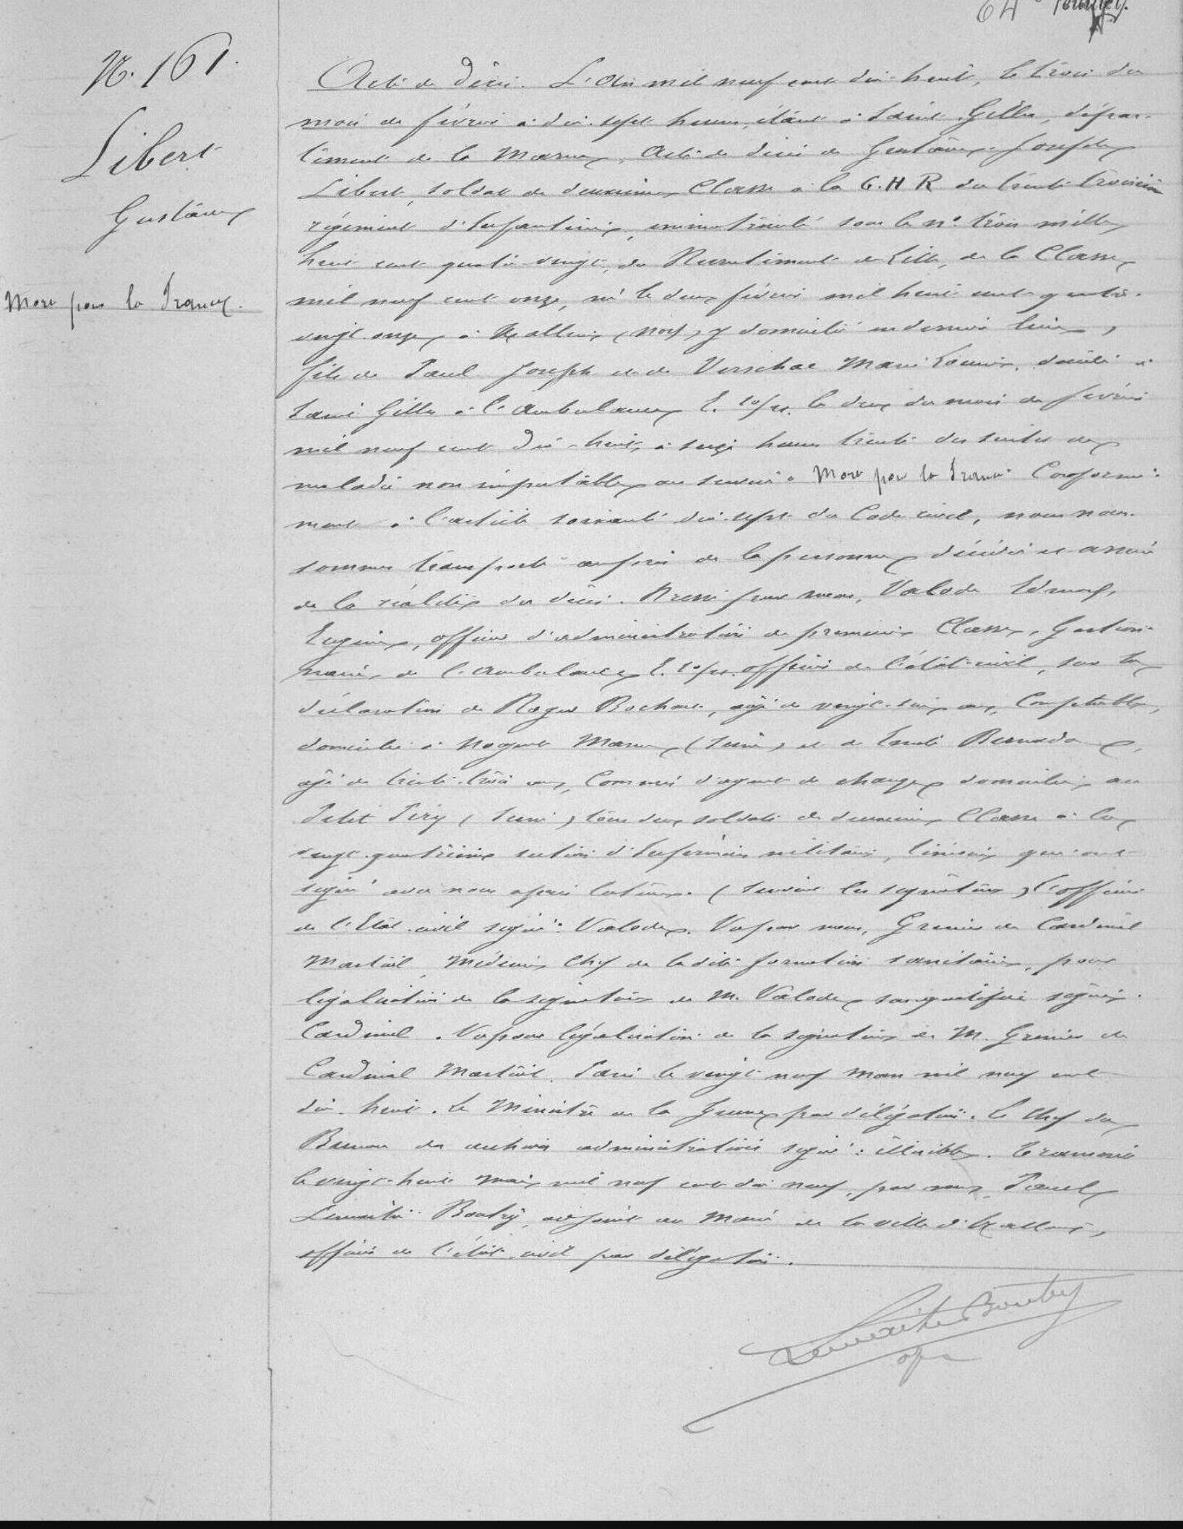 64e
N. 161.
Libert
Gustave
Mort pour la France.
Acte de décès. L'An mil neuf cent dix-huit, le trois du
mois de février à dix-sept heures, étant à Saint Gilles, dépar-
tement de la Marne, Acte de décès de Gustave Joseph
Libert, soldat de deuxième Classe à la C.H.R du trente-troisième
régiment d'Infanterie, immatriculé sous le n° trois mille
huit cent quatre-vingt, du Recrutement de Lille, de la Classe
mil neuf cent onze, né le deux février mil huit cent quatre-
vingt-onze à Halluin (Nord) y domicilié en dernier lieu,
fils de Paul Joseph et de Marie Louise, décédé à
Saint Gilles à l'Ambulance le deux du mois de février
mil neuf cent dix-huit, à seize heures trente des suites de
maladie non imputable au service. Mort pour la France. Conformé-
ment à l'article soixante dix-sept du Code civil, nous nous
sommes transporté auprès de la personne décédée et assuré
de la réalité du décès. Dressé par nous, Valode Edmond,
Eugène, officier d'administration de première Classe, Gestion-
naire de l'Ambulance officier de l'état-civil, sur la
déclaration de Roger Bochard, âgé de vingt-six ans, Comptable,
domicilié à Nogent Marne (Seine) et de Emile
âgé de trente-trois ans, Commis d'agent de change domicilié au
Petit (Seine) tous deux soldats de deuxième Classe à la
vingt-quatrième section d'Infirmiers militaires, témoins qui ont
signé avec nous après lecture. (Suivent les signatures) L'officier
de l'Etat-civil signé: Valode. Vu par nous, Grenier de Cardinal
Martial, Médecin Chef de ladite formation sanitaire, pour
légalisation de la signature de M. Valode, sus qualifié signé:
Cardinal. Vu pour légalisation de la signature de M. Grenier de
Cardinal Martial. Paris le vingt neuf mars mil neuf cent
dix-huit. Le Ministre de la Guerre par délégation. Le Chef du
Bureau des archives administratives signé: illisible. Transcrit
le vingt-huit mai mil neuf cent dix neuf, par nous, Paul
Lemaitre Boutry, adjoint au Maire de la ville d'Halluin,
officier de l'état-civil par délégation.
Lemaitre Boutry